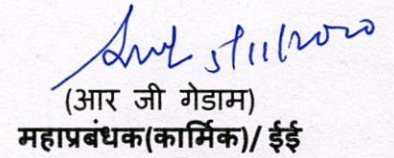 5/11/2020
(आर जी गेडाम)
महाप्रबंधक(कार्मिक)/ ईई